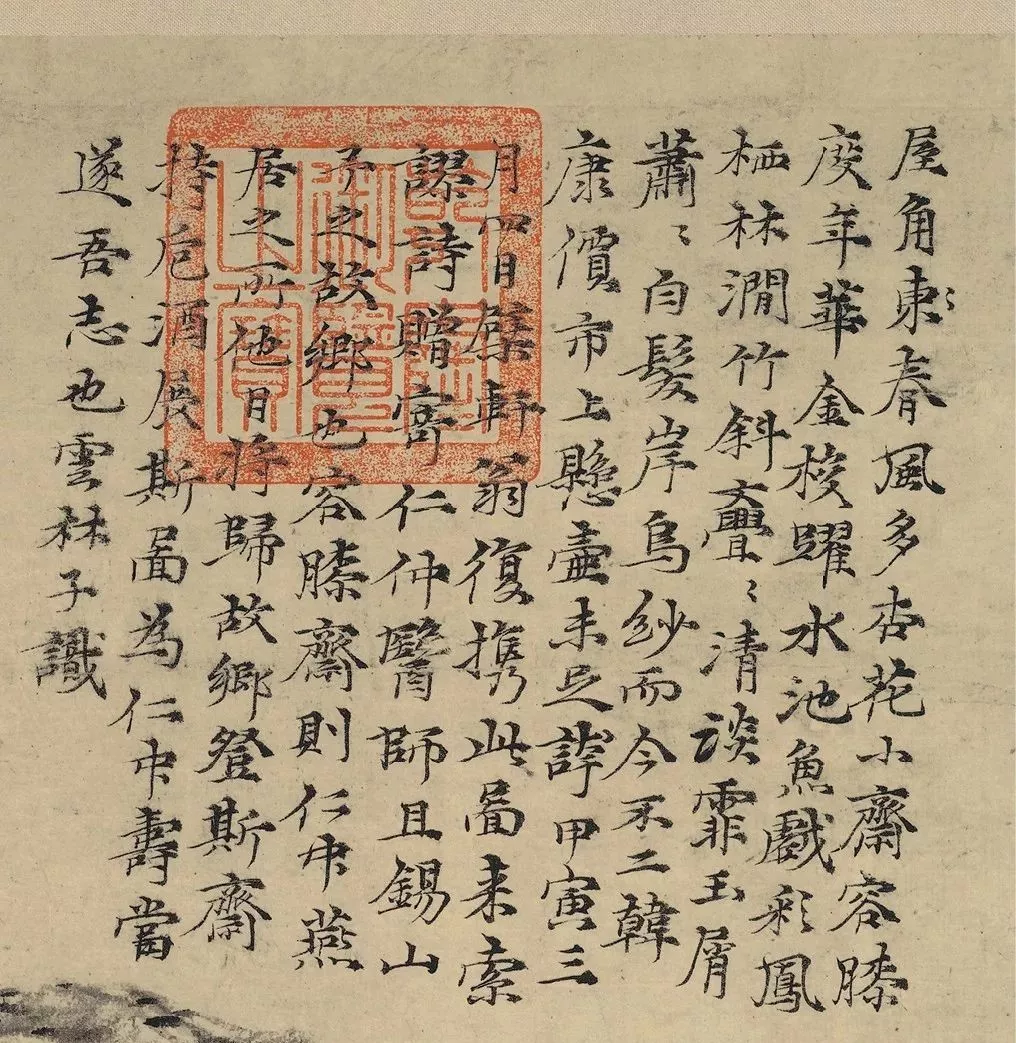 屋角東春風多杏花小齋容膝
度年華金梭躍水池魚戲彩鳳
栖林澗竹斜亹〻清談霏玉屑
蕭〻白髮岸烏紗而今不二韓
康價市上懸壺未足誇甲寅三
月四日檗軒翁復携此圖来索
謬詩贈寄仁仲醫師且錫山
予之故鄉也容膝齋則仁仲燕
居之所他日將歸故鄉登斯齋
持卮酒展斯圖為仁仲壽當
遂吾志也雲林子識
乾隆御覽之寶